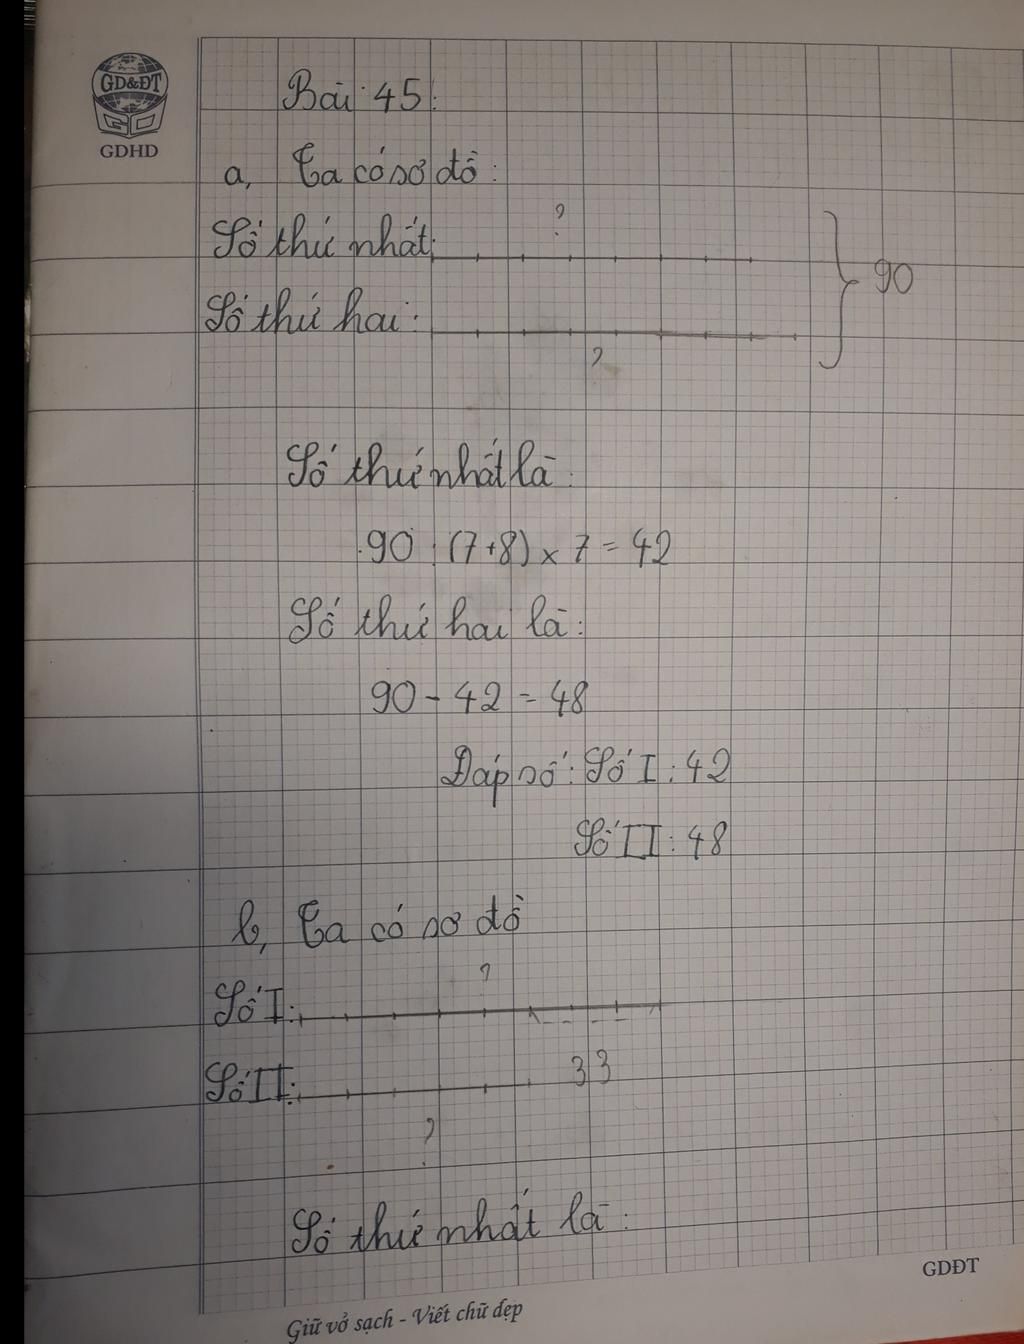 GD&ĐT
GDHD
Bài 45:
a, Ta có sơ đồ:
?
Số thứ nhất:
90
Số thứ hai:
?
Số thứ nhất là:
90 : (7+8) x 7 = 42
Số thứ hai là:
90 - 42 = 48
Đáp số: Số I: 42
Số II: 48
b, Ta có sơ đồ
?
Số I:
Số II: 33
?
Số thứ nhất là:
GDĐT
Giữ vở sạch - Viết chữ đẹp